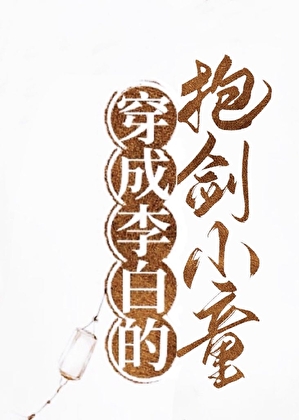 穿成李白的
抱剑小童